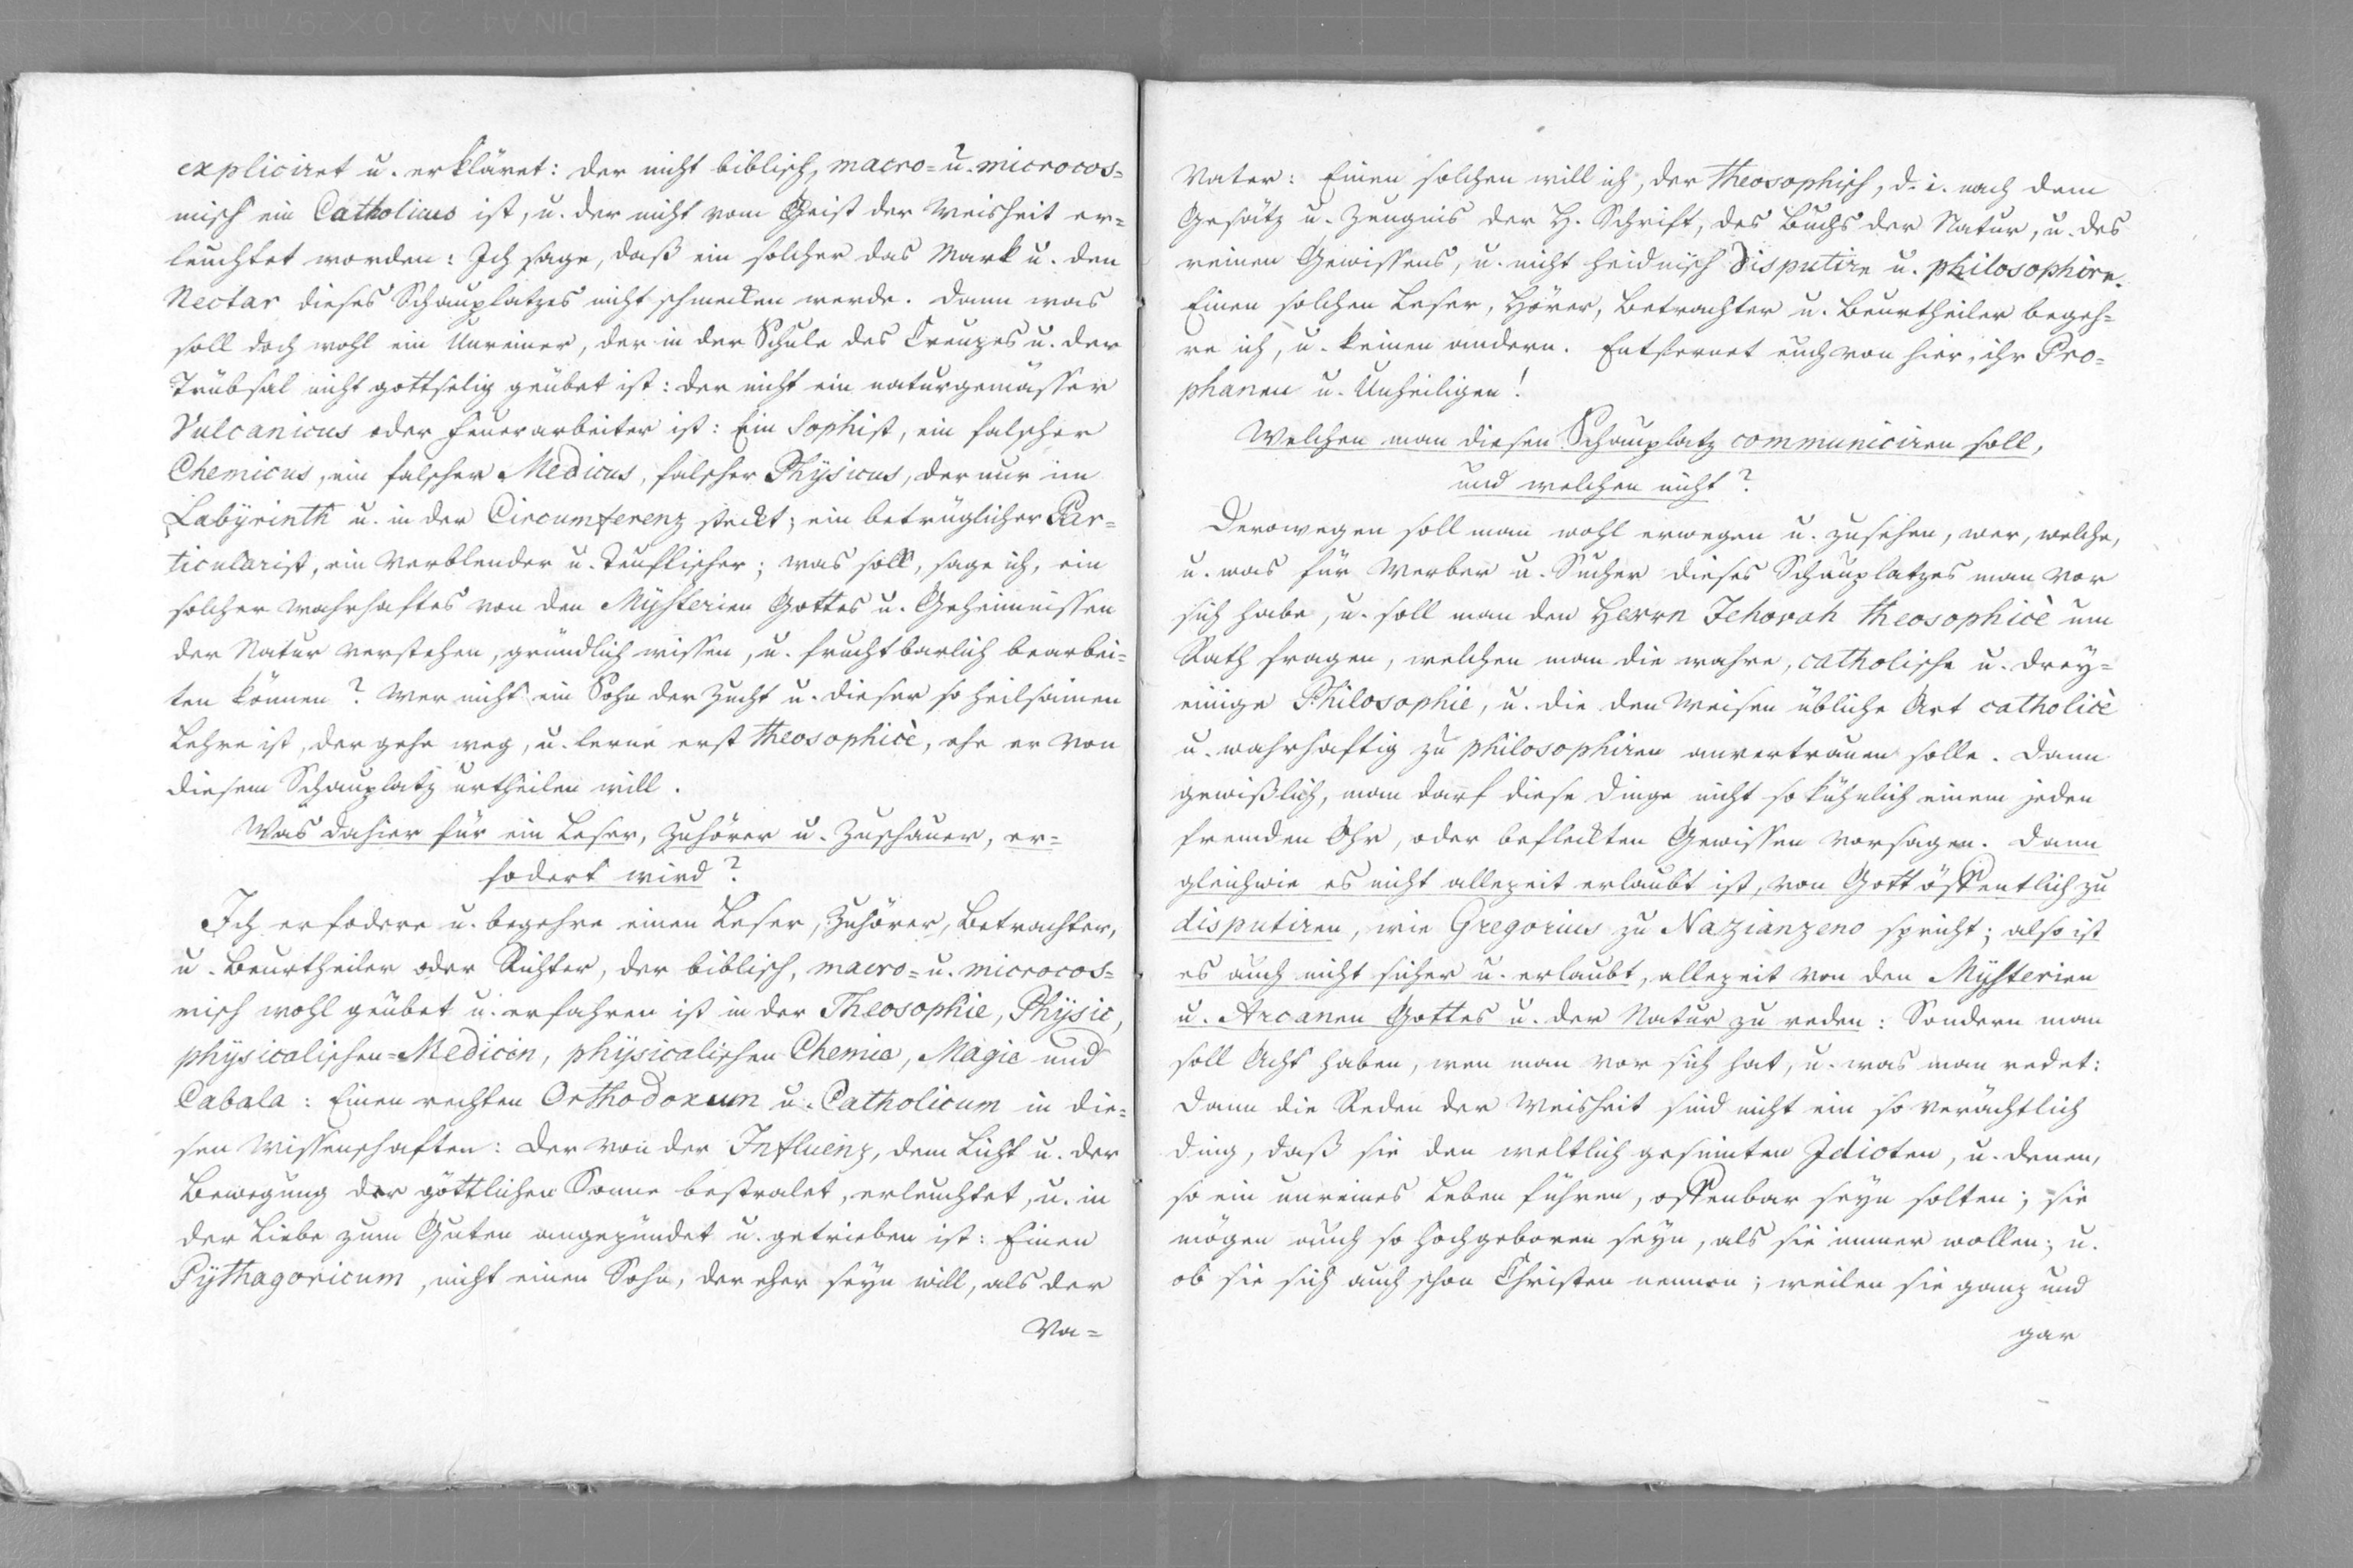 expliciret u. erkläret: der nicht biblisch, macro= u. microcos=
misch ein Catholicus ist, u. der nicht vom Geist der Weisheit er=
leuchtet worden: Ich sage, daß ein solcher das Mark u. den
Nectar dieses Schauplatzes nicht schmecken werde. Dann was
soll doch wohl ein Unreiner, der in der Schule des Creuzes u. der
Trübsal nicht gottselig geübet ist: der nicht ein naturgemässer
Vulcanicus oder Feuerarbeiter ist: Ein Sophist, ein falscher
Chemicus, ein falscher Medicus, falscher Physicus, der nur im
Labyrinth u. in der Circumferenz steckt; ein betrüglicher Par=
ticularist, ein Verblender u. Teuflischer; was soll, sage ich, ein
solcher wahrhaftes von den Mysterien Gottes u. Geheimnissen
der Natur verstehen, gründlich wissen, u. fruchtbarlich bearbei=
ten können? Wer nicht ein Sohn der Zucht u. dieser so heilsamen
Lehre ist, der gehe weg, u. lerne erst theosophicè, ehe er von
diesem Schauplatz urtheilen will.
Was dahier für ein Leser, Zuhörer u. Zuschauer, er=
fodert wird?
Ich erfodere u. begehre einen Leser, Zuhörer, Betrachter,
u. Beurtheiler oder Richter, der biblisch, macro= u. microcos=
misch wohl geübet u. erfahren ist in der Theosophie, Physic,
physicalischen=Medicin, physicalischen Chemie, Magie und
Cabala: Einen rechten Orthodoxum u. Catholicum in die=
sen Wissenschaften: Der von der Influenz, dem Licht u. der
Bewegung der göttlichen Sonne bestralet, erleuchtet, u. in
der Liebe zum Guten angezündet u. getrieben ist: Einen
Pythagoricum, nicht einen Sohn, der eher seyn will, als der
Va=
Vater: Einen solchen will ich, der theosophisch, d. i. nach dem
Gesätz u. Zeugnis der H. Schrift, des Buchs der Natur, u. des
reinen Gewissens, u. nicht heidnisch disputire u. philosophire.
Einen solchen Leser, Hörer, Betrachter u. Beurtheiler begeh=
re ich, u. keinen andern. Entfernet euch von hier, ihr Pro=
phanen u. Unheiligen!
Welchen man diesen Schauplatz communiciren soll,
und welchen nicht?
Derowegen soll man wohl erwegen u. zusehen, wer, welche,
u. was für Werber u. Sucher dieses Schauplatzes man vor
sich habe, u. soll man den Herrn Jehovah theosophicè um
Rath fragen, welchen man die wahre, catholische u. drey=
einige Philosophie, u. die den Weisen übliche Art catholicè
u. wahrhaftig zu philosophiren anvertrauen solle. Dann
gewißlich, man darf diese Dinge nicht so kühnlich einem jeden
fremden Ohr, oder befleckten Gewissen vorsagen. Dann
gleichwie es nicht allezeit erlaubt ist, von Gott öffentlich zu
disputiren, wie Gregorius zu Nazianzeno spricht; also ist
es auch nicht sicher u. erlaubt, allezeit von den Mysterien
u. Arcanen Gottes u. der Natur zu reden: Sondern man
soll Acht haben, wen man vor sich hat, u. was man redet:
Dann die Reden der Weisheit sind nicht ein so verächtlich
Ding, daß sie den weltlich gesinnten Idioten, u. denen,
so ein unreines Leben führen, offenbar seyn solten; sie
mögen auch so hochgeboren seyn, als sie immer wollen; u.
ob sie sich auch schon Christen nennen; weilen sie ganz und
gar